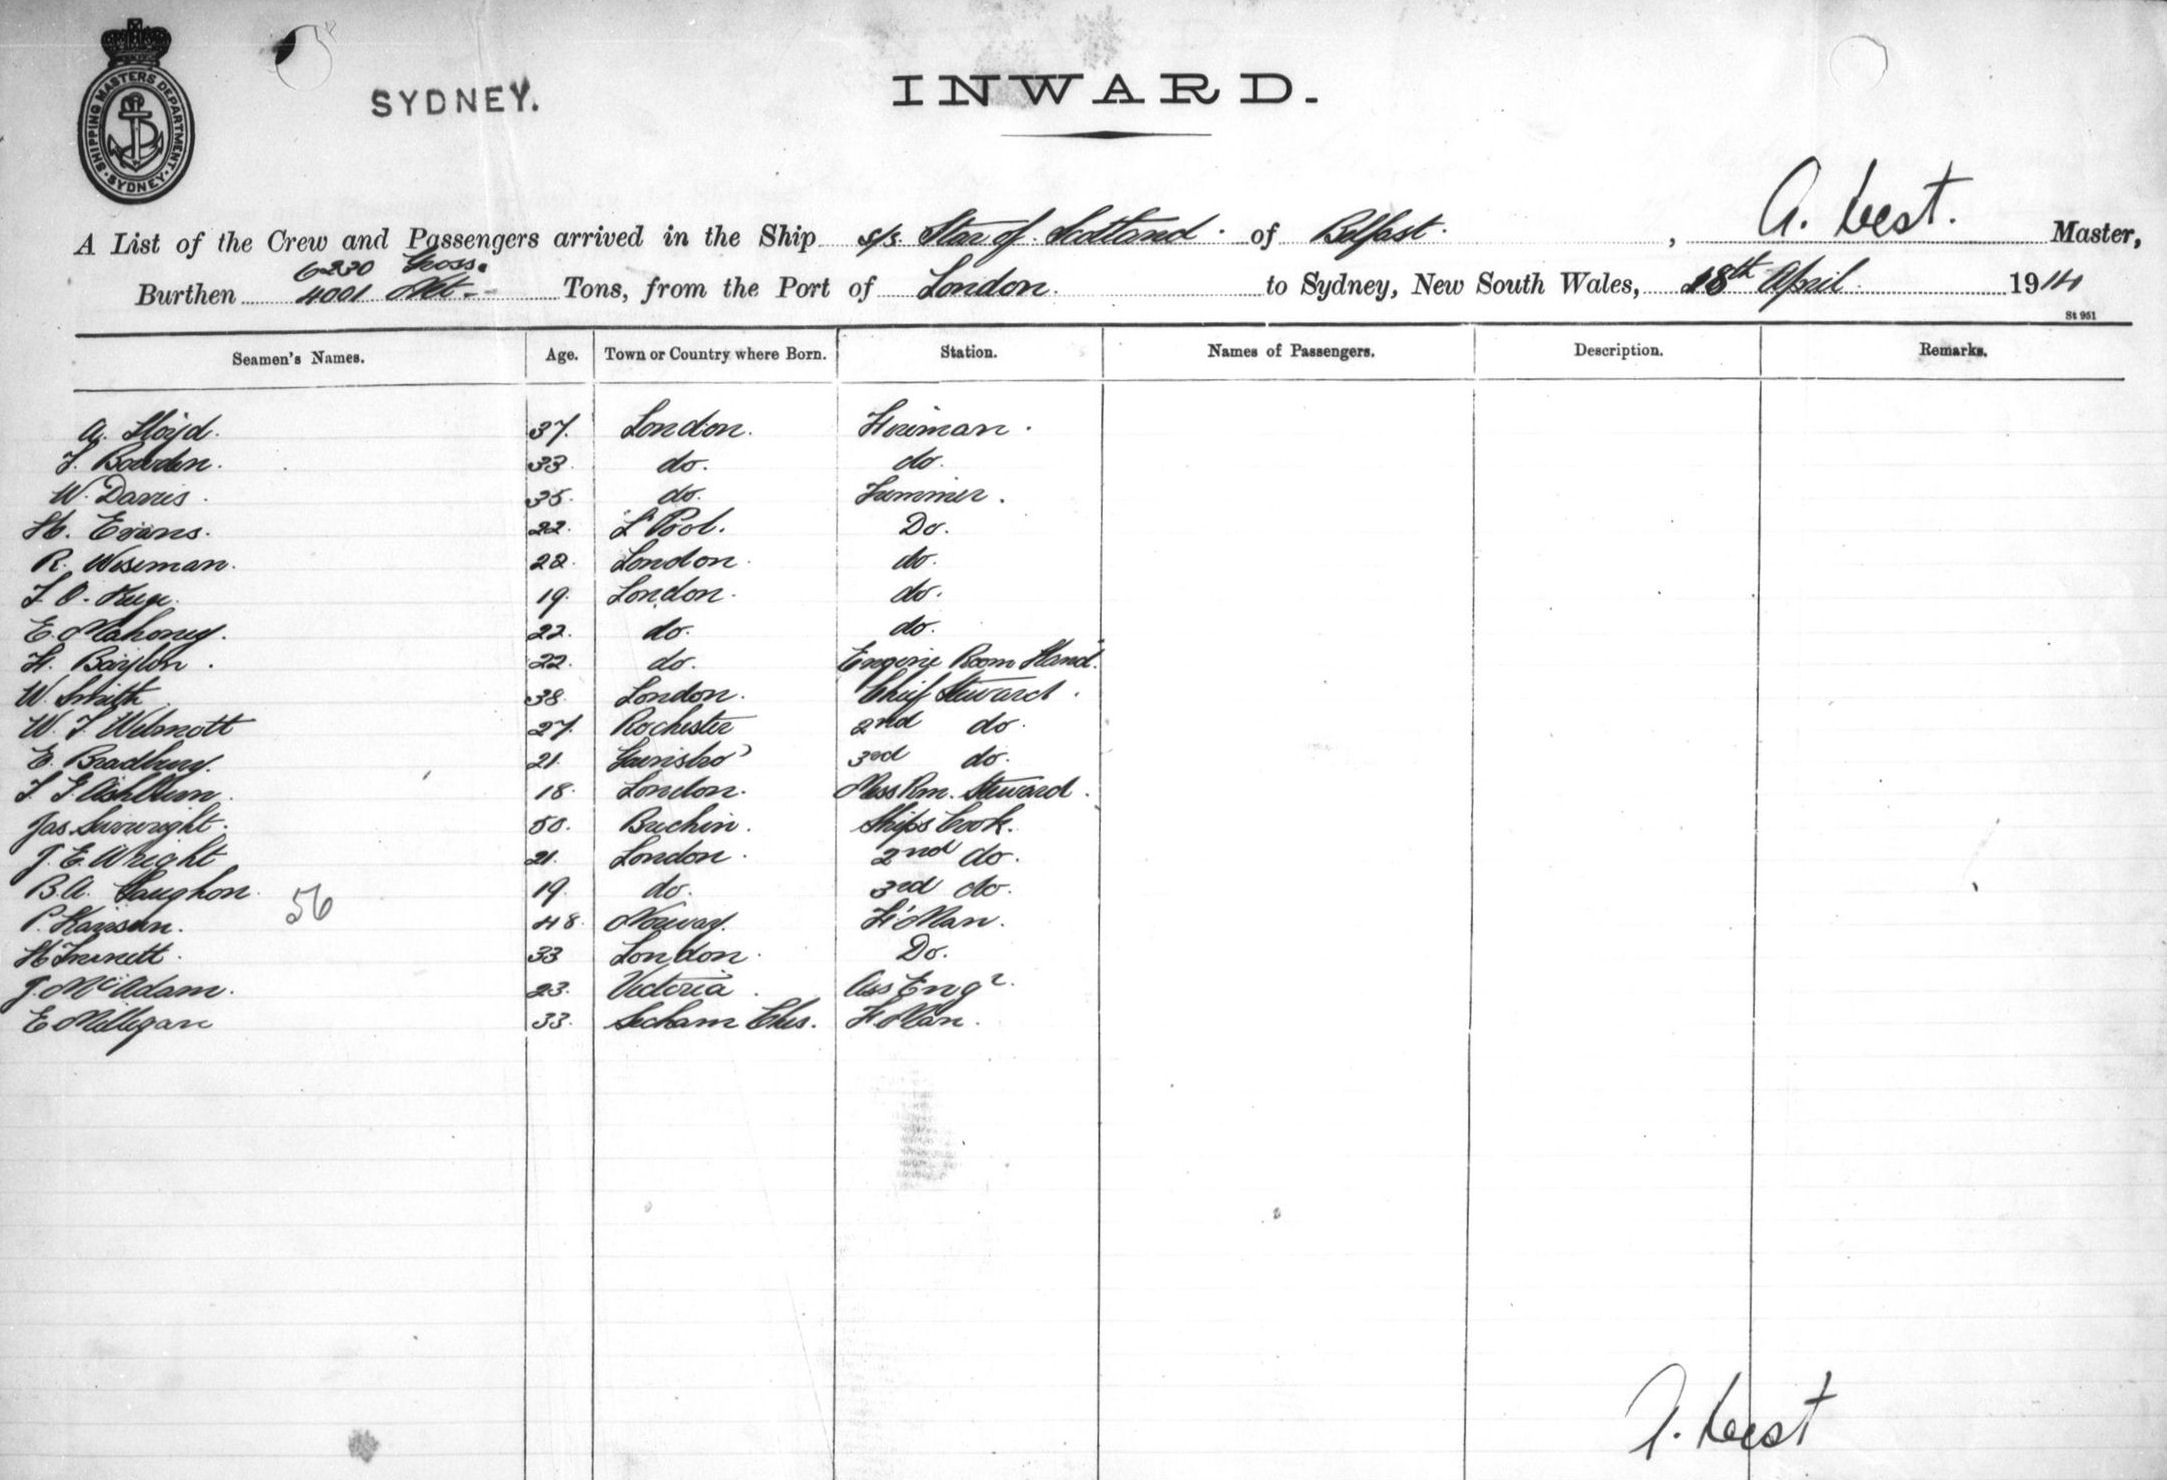 SHIPPING MASTERS DEPARTMENT. SYDNEY.
SYDNEY.
INWARD.
A List of the Crew and Passengers arrived in the Ship S/S. Star of Scotland. of Belfast. , A. West. Master,
6230 Gross.
Burthen 4001 Net. Tons, from the Port of London. to Sydney, New South Wales, 18th April 1914
St 951
Seamen's Names. Age. Town or Country where Born. Station. Names of Passengers. Description. Remarks.
A. Lloyd. 37. London. Fireman.
F. Bowden. 33. do. do.
W. Davies. 35. do. Trimmer.
H. Evans. 22. L'Pool. Do.
R. Wiseman. 22. London. do.
19. London. do.
E. Mahoney. 22. do. do.
H. Baylon. 22. do. Engine Room Hand.
W. Smith 38. London. Chief Steward.
W. J. Welmott 27. Rochester 2nd do.
E. Bradbury. 21. Gainsbro' 3rd do.
Ashburn. 18. London. Mess Rm. Steward.
Jas. 50. Brechin. Ships Cook.
J. E. Wright 21. London. 2nd do.
B. A. 19. do. 3rd do.
56
P. Hansen. 48. Norway. F'Man.
H. 33 London. Do.
J. McAdam. 23. Victoria. Ass Engr.
E Milligan 33. F'Man.
A. West